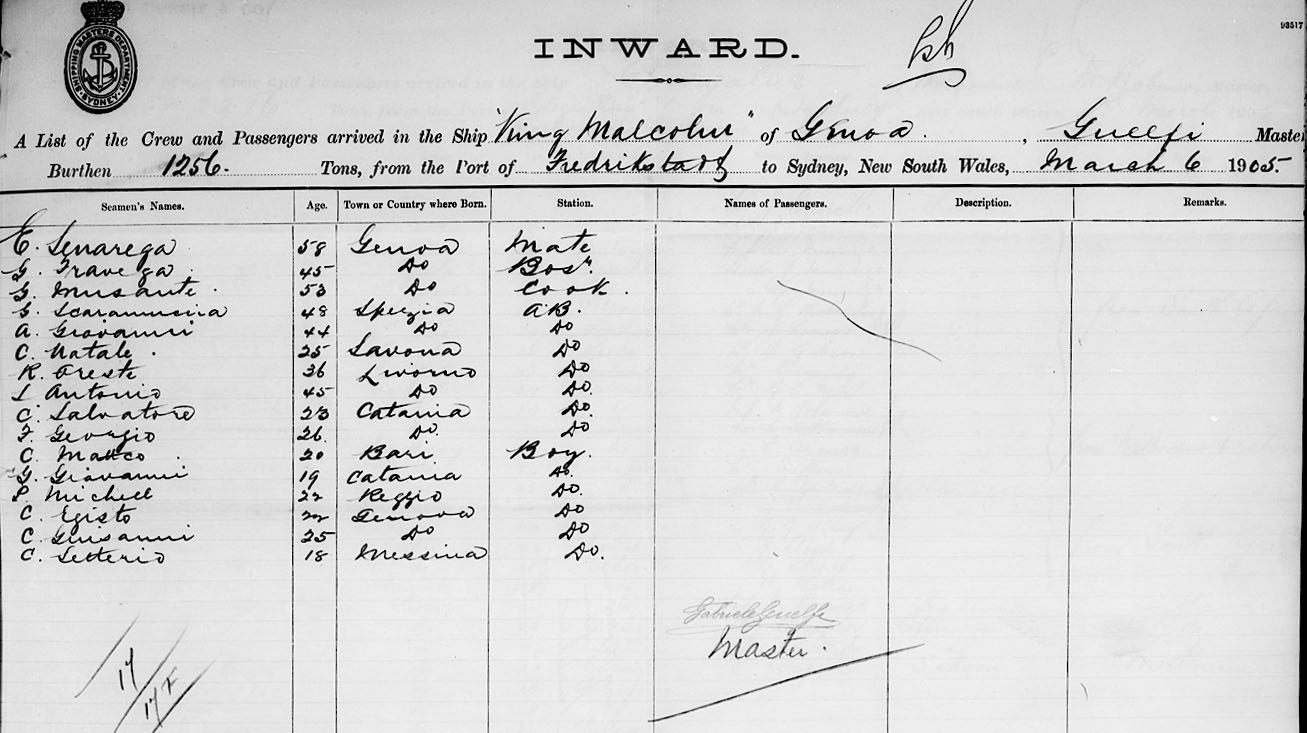 SHIPPING MASTERS DEPARTMENT SYDNEY
93517
INWARD.
A List of the Crew and Passengers arrived in the Ship "King Malcolm" of Genoa, Guelfi Master
Burthen 1256. Tons, from the Port of Fredrikstadt to Sydney, New South Wales, March 6 1905.
Seamen's Names. Age. Town or Country where Born. Station. Names of Passengers. Description. Remarks.
E. Senarega 58 Genoa Mate
G. Travega 45 Do Bosn.
G. Musante. 53 Do Cook.
G. 48 Spezia AB.
A. Giovanni 44 Do Do
C. Natale. 25 Savona Do
R. Oreste 36 Livorno Do
L Antonio 45 Do Do.
C. Salvatore 23 Catania Do.
F. Georgio 26. Do. Do
C. Matteo 20 Bari Boy.
G. Giovanni 19 Catania Do.
P. Michell 22 Reggio Do.
C. Egisto 22 Genova Do
C. 25 Do Do
C. Letterio 18 Messina Do.
Gabriele Guelfi
Master.
17
17 F